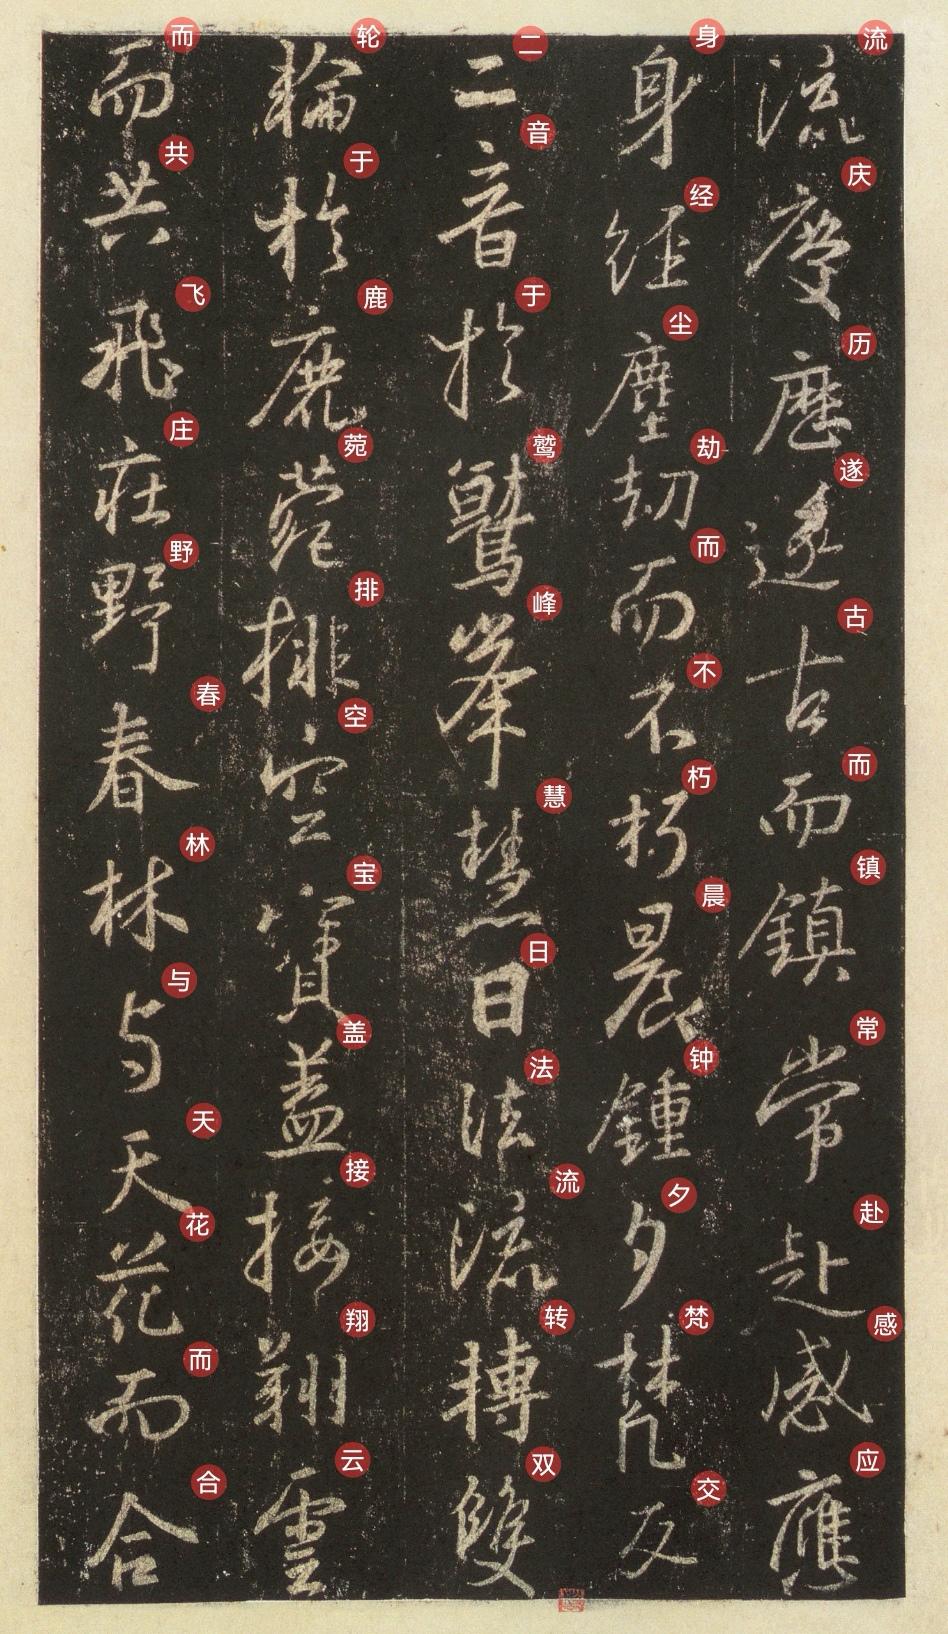 流慶歷遂古而鎮常赴感應
流庆历遂古而镇常赴感应
身經塵劫而不朽晨鍾夕梵交
身经尘劫而不朽晨钟夕梵交
二音於鷲峯慧日法流轉雙
二音于鹫峰慧日法流转双
輪於鹿菀排空寶蓋接翔雲
轮于鹿菀排空宝盖接翔云
而共飛莊野春林与天花而合
而共飞庄野春林与天花而合